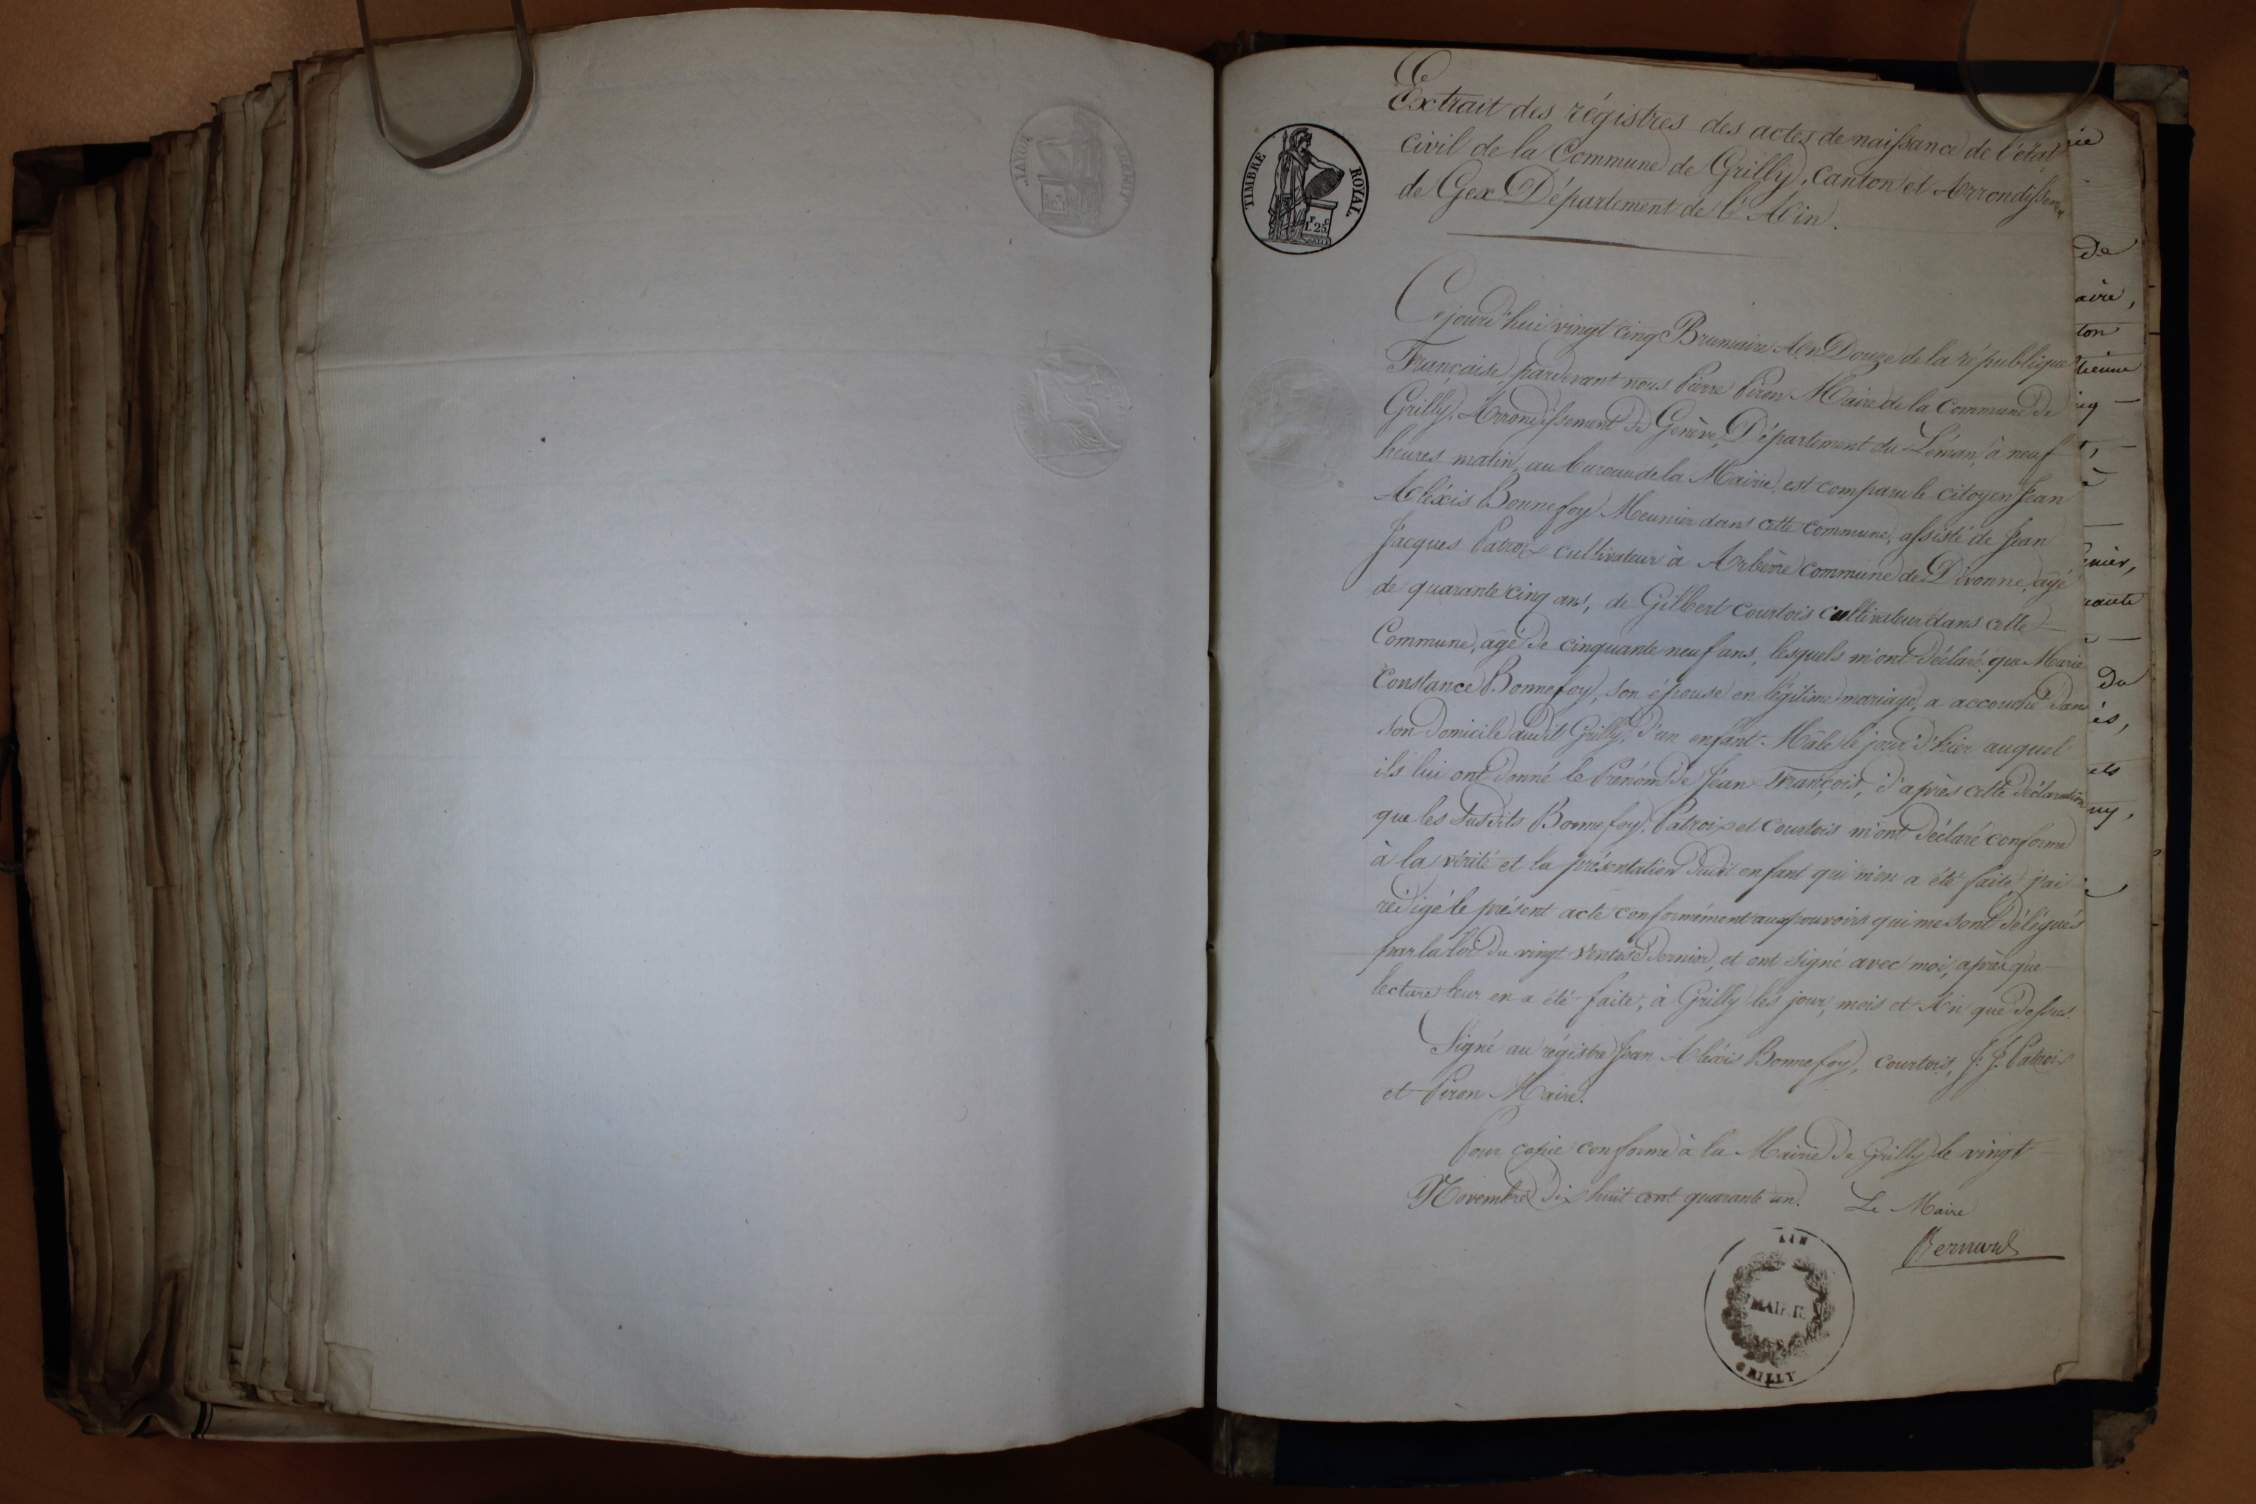 Extrait des régistres des actes de naissance de l'état
civil de la Commune de Grilly, canton et Arrondissem
de Gex Département de l'Ain.
TIMBRE ROYAL
1.25
Cejourd'hui vingt cinq Brumaire An Douze de la république
Française, pardevant nous Pierre Piron Maire de la Commune de
Grilly, Arrondissement de Genève, Département du Léman, à neuf
heures matin, au bureau de la Mairie, est comparu le citoyen Jean
Aléxis Bonnefoy Meunier dans cette commune, assisté de Jean
Jacques Patroix cultivateur à Arbère commune de Divonne, âgé
de quarante cinq ans, de Gilbert Courtois cultivateur dans cette
Commune, âgé de cinquante neuf ans, lesquels m'ont déclaré que Marie
Constance Bonnefoy, son épouse en légitime mariage, a accouché dans
son domicile audit Grilly, d'un enfant Mâle le jour d'hier auquel
ils lui ont donné le Prénom de Jean François, d'après cette déclaration
que les susdits Bonnefoy, Patroix et Courtois m'ont déclaré conforme
à la vérité et la présentation dudit enfant qui m'en a été faite, j'ai
rédigé le présent acte conformément aux pouvoirs qui me sont délégués
par la loi du vingt Ventose dernier, et ont signé avec moi, après que
lecture leur en a été faite, à Grilly les jour, mois et An que dessus.
Signé au régistre Jean Aléxis Bonnefoy, Courtois, J. J. Patroix
et Piron Maire.
Pour copie conforme à la Mairie de Grilly le vingt
Novembre dix huit cent quarante un. Le Maire
Bernard
AIN
MAIRIE
GRILLY
de
aire,
ton
tienne
nier,
du
és,